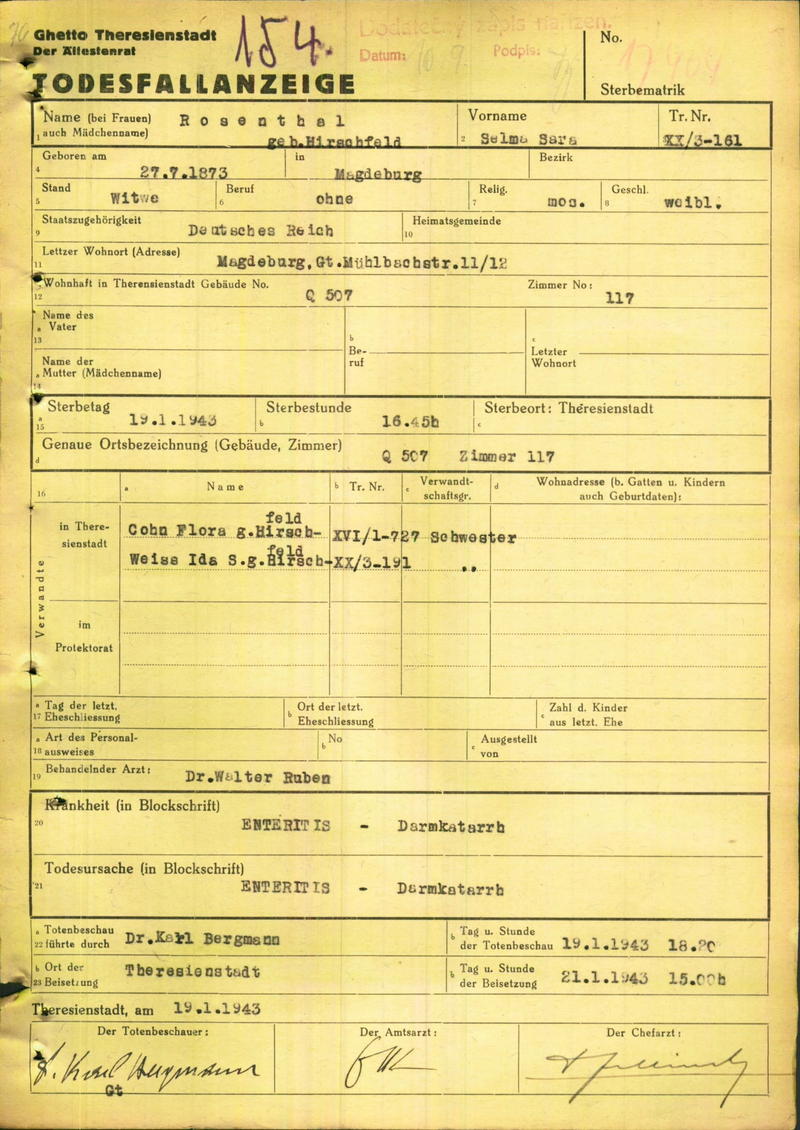 Ghetto Theresienstadt
Der Ältestenrat
154.
Dodatečný zápis nařízen.
Datum: 10 9. Podpis:
No.
17909
TODESFALLANZEIGE
Sterbematrik
Name (bei Frauen) auch Mädchenname) Rosenthal
1 geb.Hirschfeld
Vorname
2 Selma Sara
Tr. Nr.
XX/3-161
4 Geboren am 27.7.1873 in Magdeburg Bezirk
5 Stand Witwe 6 Beruf ohne 7 Relig. mos. 8 Geschl. weibl.
9 Staatszugehörigkeit Deutsches Reich 10 Heimatsgemeinde
11 Lettzer Wohnort (Adresse) Magdeburg,Gt.Mühlbachstr.11/12
12 Wohnhaft in Therensienstadt Gebäude No. Q 507 Zimmer No: 117
13 a Name des Vater
14 a Name der Mutter (Mädchenname)
b Be-ruf
c Letzter Wohnort
15 a Sterbetag 19.1.1943 b Sterbestunde 16.45h c Sterbeort: Théresienstadt
d Genaue Ortsbezeichnung (Gebäude, Zimmer) Q 507 Zimmer 117
16 a Name b Tr. Nr. c Verwandt-schaftsgr. d Wohnadresse (b. Gatten u. Kindern auch Geburtdaten):
Verwandte
in There-sienstadt
feld
Cohn Flora g.Hirsch- XVI/1-727 Schwester
feld
Weiss Ida S.g.Hirsch-XX/3-191 ,,
im Protektorat
17 a Tag der letzt. Eheschliessung b Ort der letzt. Eheschliessung c Zahl d. Kinder aus letzt. Ehe
18 a Art des Personal-ausweises b No c Ausgestellt von
19 Behandelnder Arzt: Dr.Walter Ruben
Krankheit (in Blockschrift)
20 ENTERITIS - Darmkatarrh
Todesursache (in Blockschrift)
21 ENTERITIS - Darmkatarrh
22 a Totenbeschau führte durch Dr.Karl Bergmann b Tag u. Stunde der Totenbeschau 19.1.1943 18.20
23 b Ort der Beisetzung Theresienstadt b Tag u. Stunde der Beisetzung 21.1.1943 15.00h
Theresienstadt, am 19.1.1943
Der Totenbeschauer: Der Amtsarzt: Der Chefarzt:
Dr. Karl Bergmann
Gt